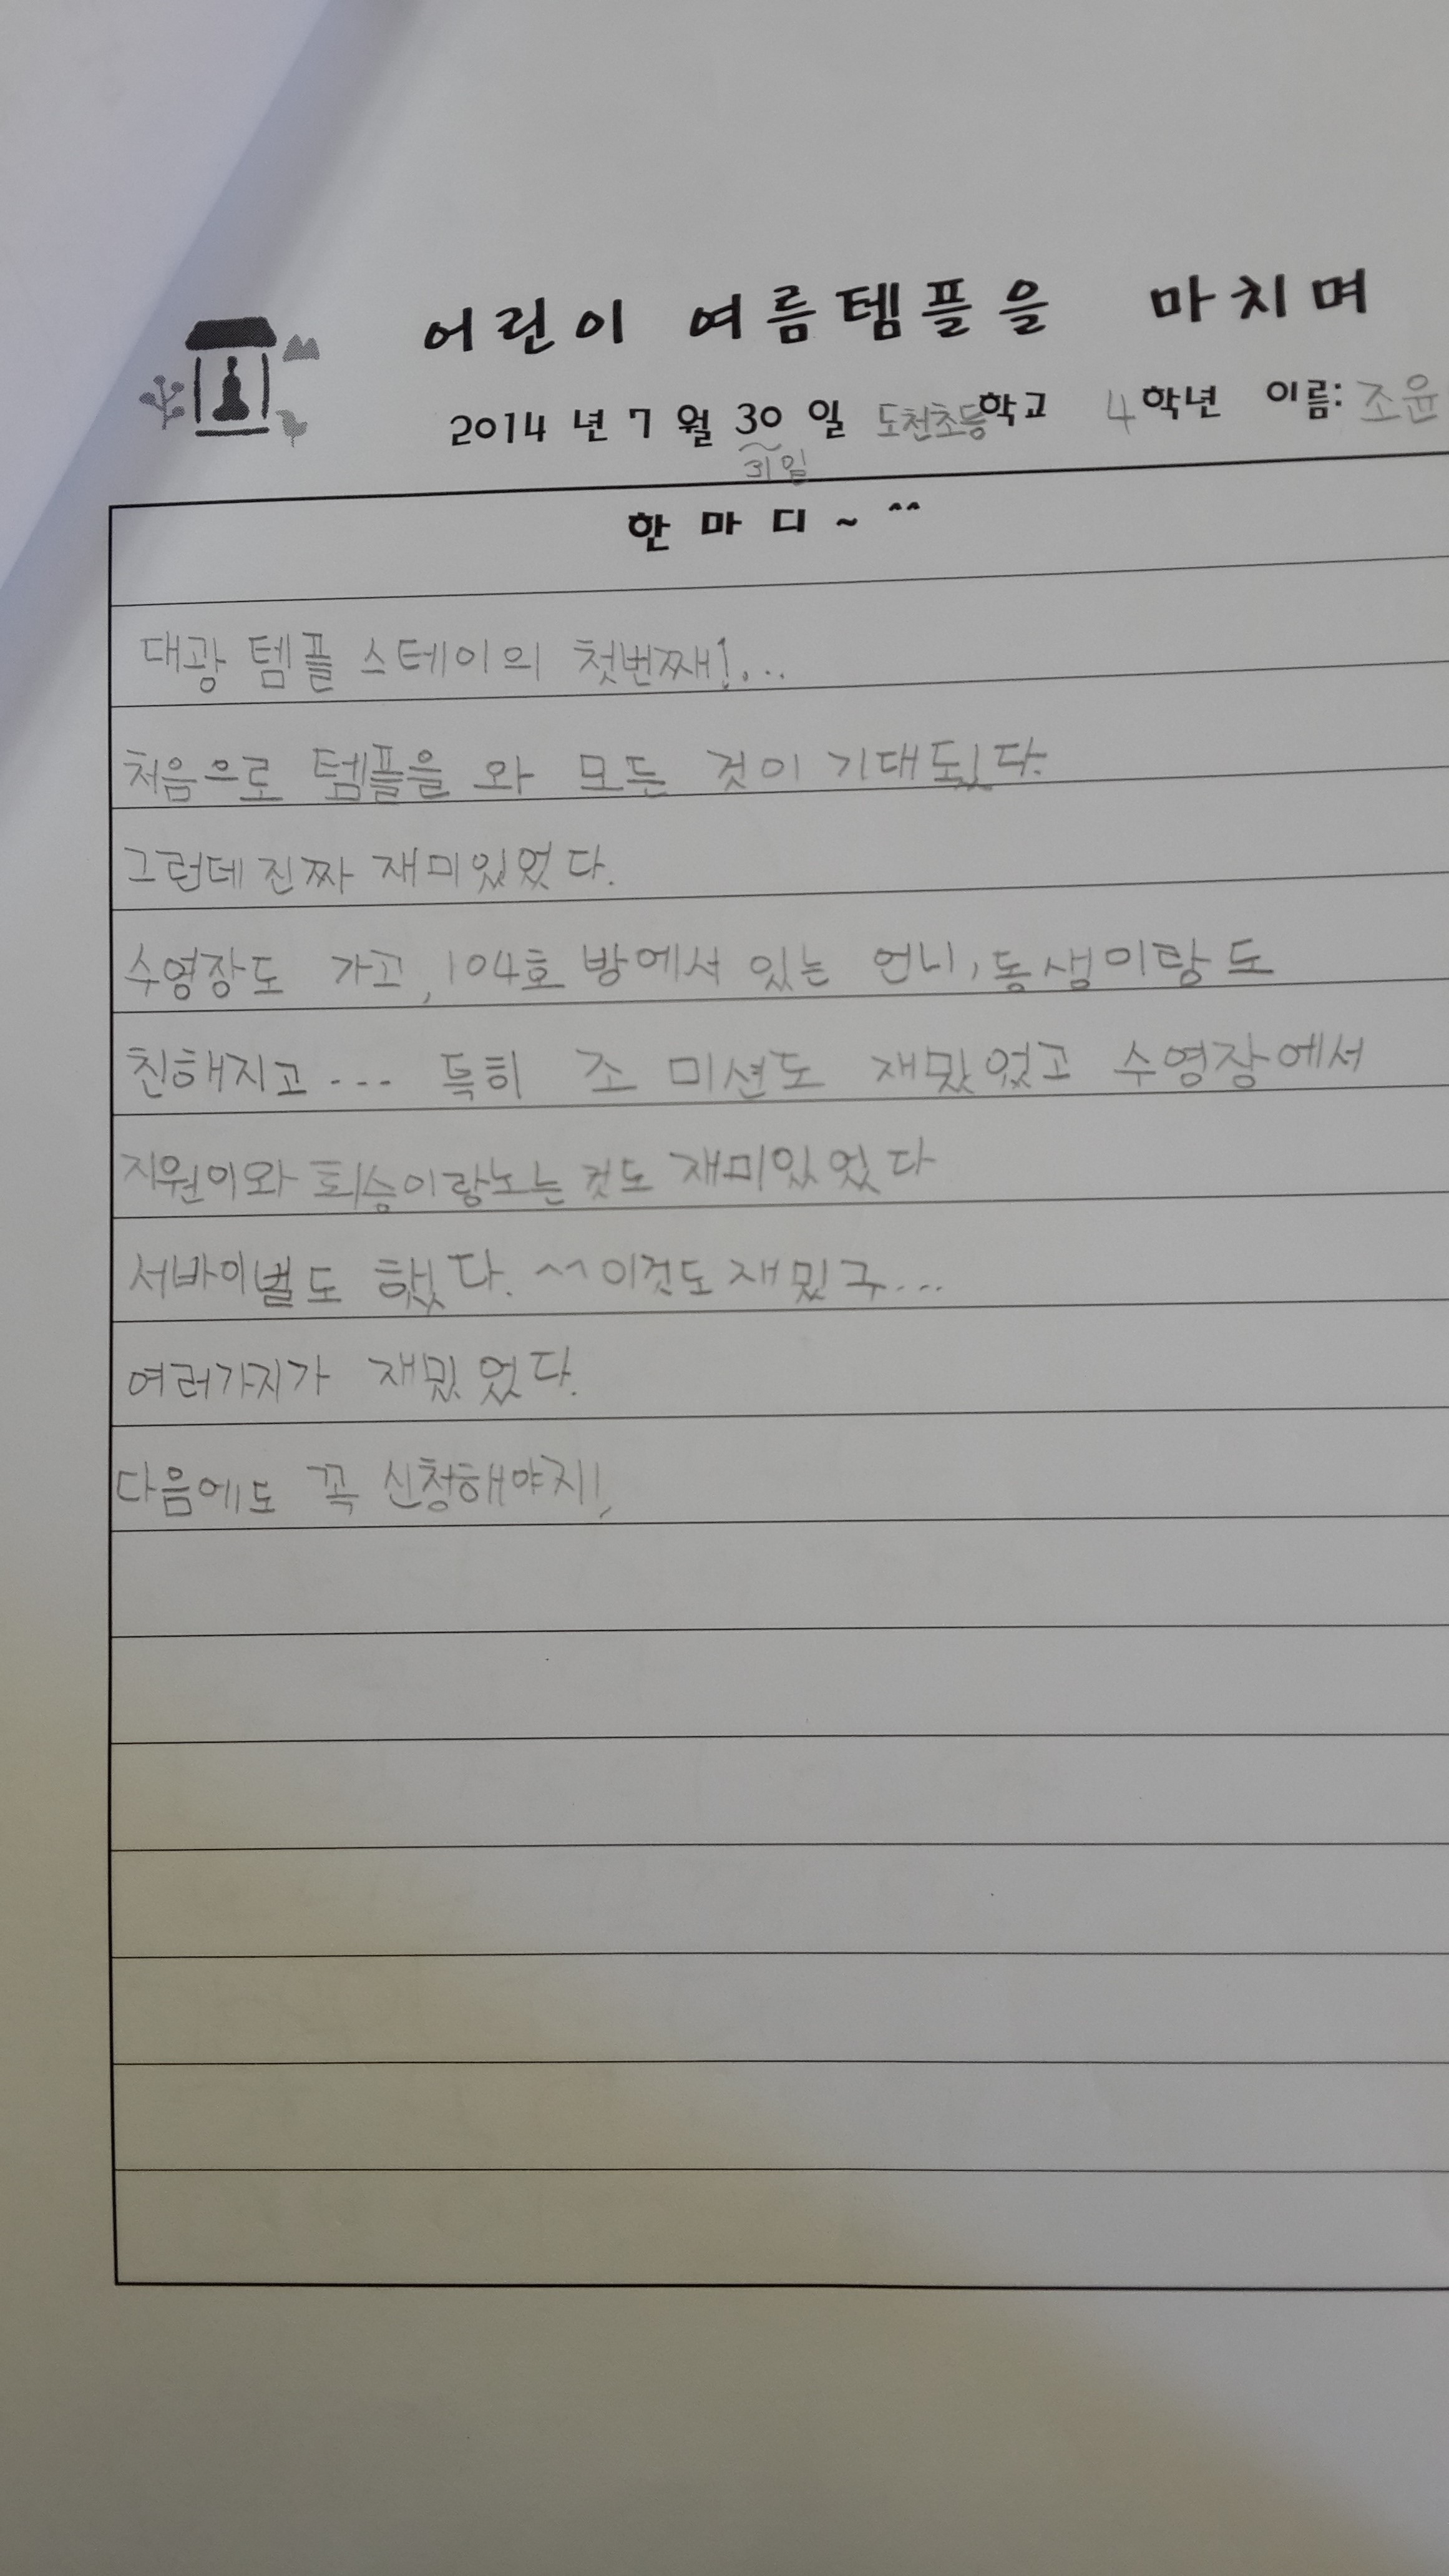 어린이 여름템플을 마치며
2014 년 7 월 30 일 도천초등학교 4 학년 이름: 조윤
~
31일
한 마 디 ~ ^^
대광 템플 스테이의 첫번째!...
처음으로 템플을 와 모든 것이 기대됬다.
그런데 진짜 재미있었다.
수영장도 가고, 104호 방에서 있는 언니, 동생이랑도
친해지고... 특히 조 미션도 재밌었고 수영장에서
지원이와 퇴승이랑노는것도 재미있었다
서바이벌도 했다. ^^이것도 재밌구...
여러가지가 재밌었다.
다음에도 꼭 신청해야지!